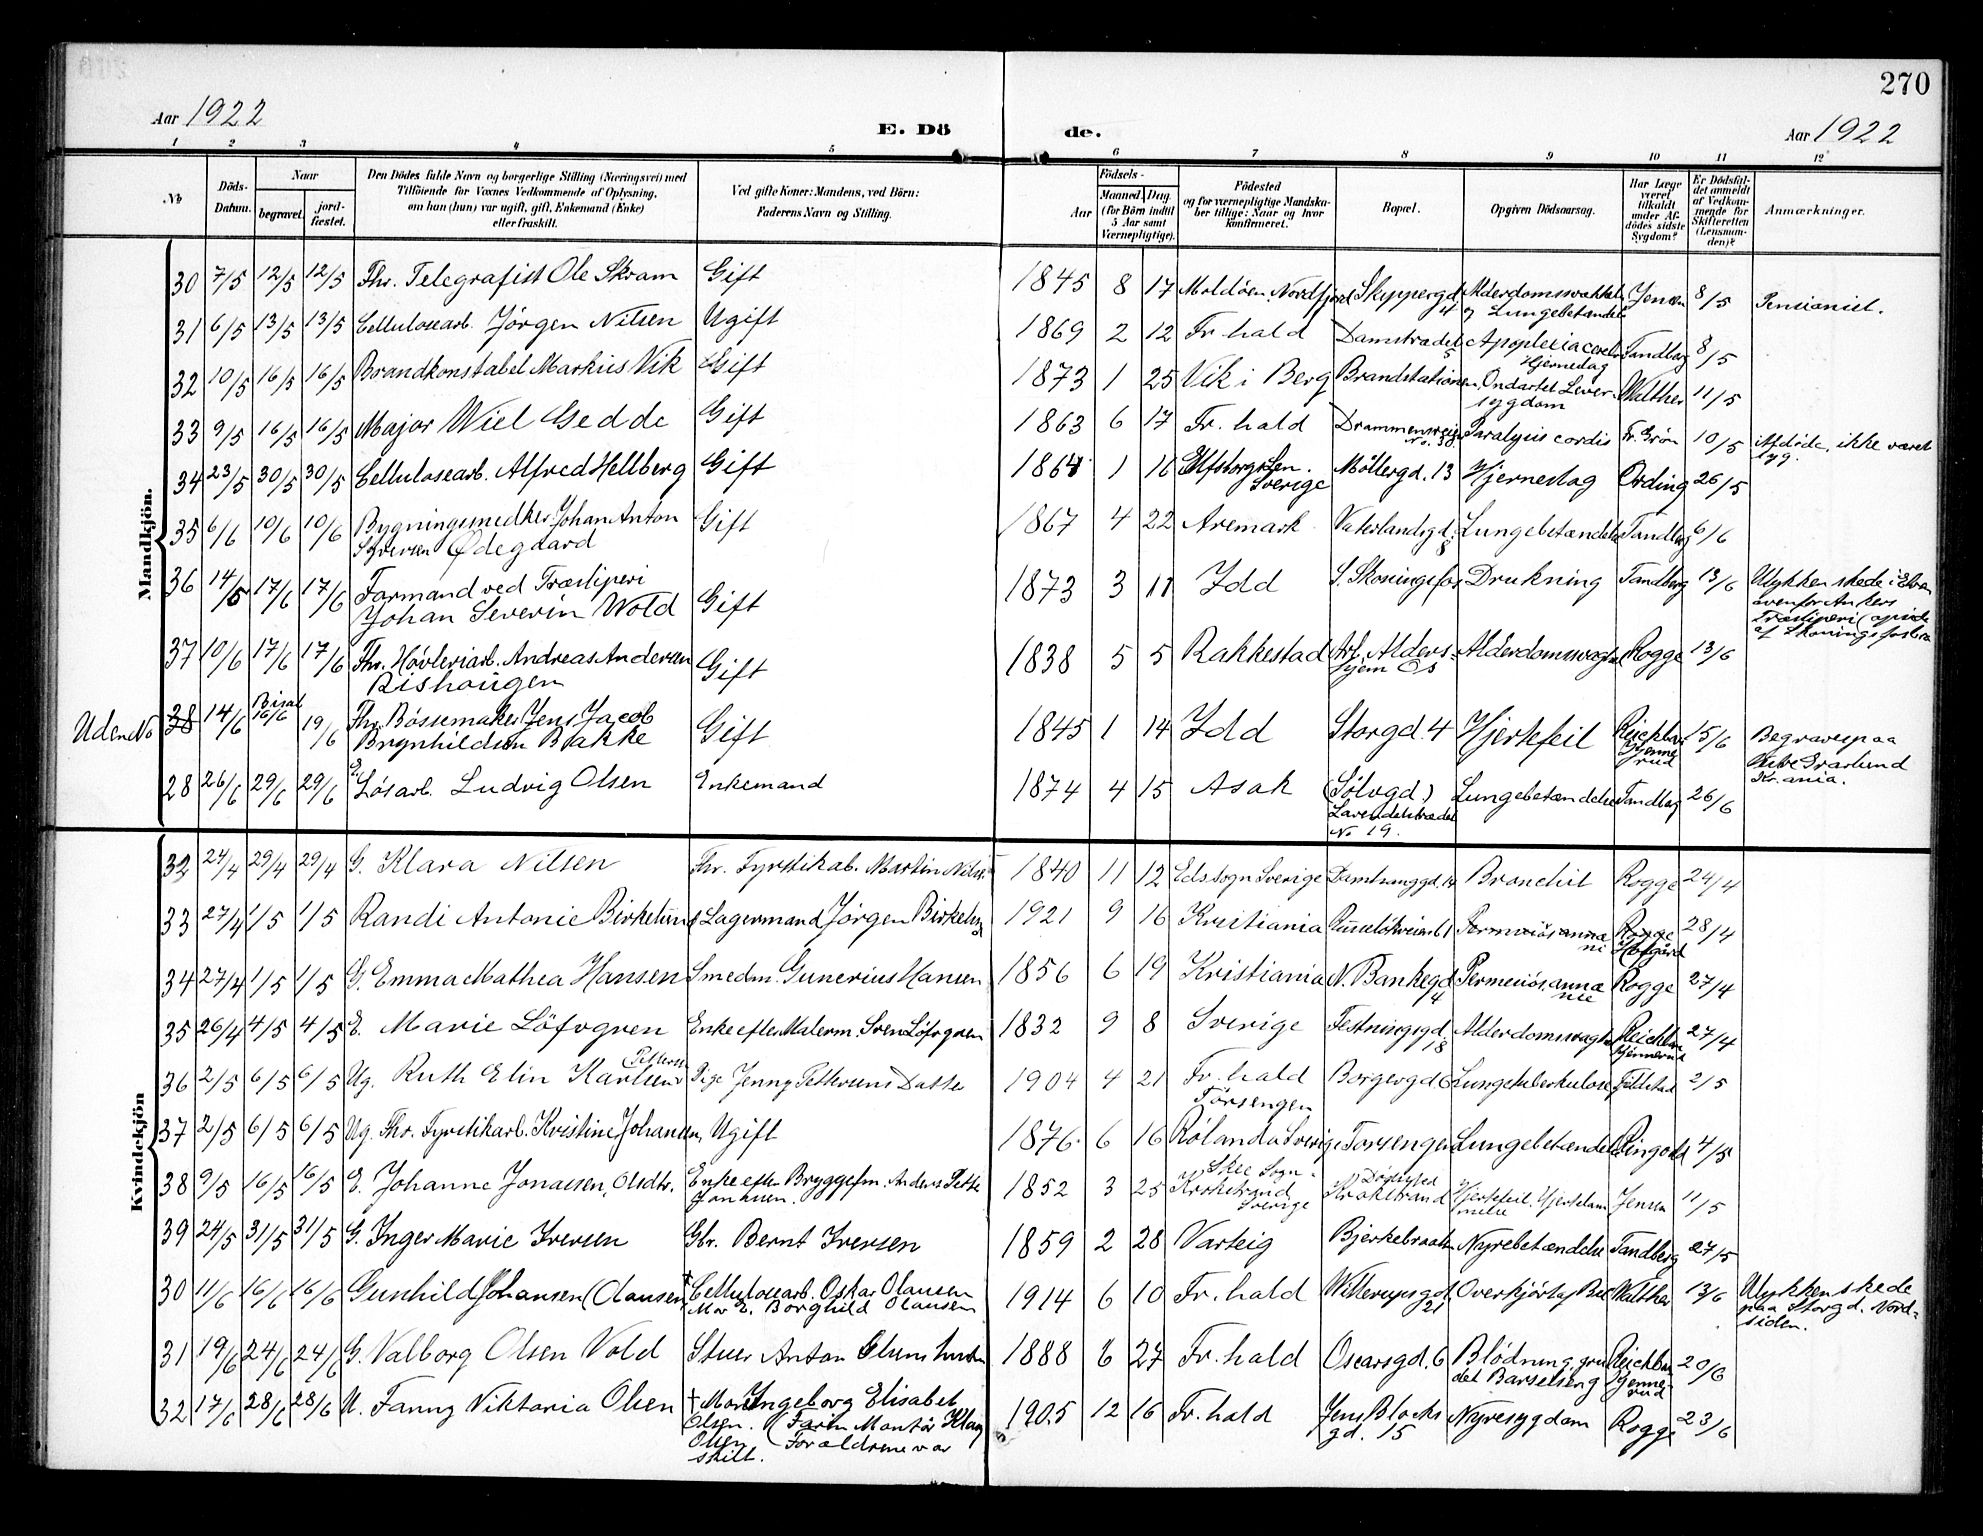 270
Aar 1922
E. Dö
de.
Aar 1922
1 2 3 4 5 6 7 8 9 10 11 12
No
Döds-
Datum.
Naar
begravet.
jord-
fæstet.
Den Dödes fulde Navn og borgerlige Stilling (Næringsvei) med
Tilföiende for Voxnes Vedkommende af Oplysning,
om han (hun) var ugift, gift, Enkemand (Enke)
eller fraskilt.
Ved gifte Koner: Mandens, ved Börn:
Faderens Navn og Stilling.
Födsels-
Aar
Maaned. Dag.
(for Börn indtil
5 Aar samt
Værnepligtige).
Födested
og for værnepligtige Mandska-
ber tillige: Naar og hvor
konfirmeret.
Bopæl.
Opgiven Dödsaarsag.
Har Læge
været
tilkaldt
under Af-
dödes sidste
Sygdom?
Er Dödsfal-
det anmeldt
af Vedkom-
mende for
Skifteretten
(Lensman-
den)?
Anmærkninger.
Mandkjön.
30 7/5 12/5 12/5 Fhv. Telegrafist Ole Skram Gift 1845 8 17 Moldöen, Nordfjord Skippergd. 4 Alderdomssvakkelse og Lungebetændelse Jensen 8/5 Pensionist.
31 6/5 13/5 13/5 Cellulosearb. Jörgen Nilsen Ugift 1869 2 12 Fr.hald Damstrædet 5 Apoplexia cerebri Hjerneslag Tandberg 8/5
32 10/5 16/5 16/5 Brandkonstabel Markus Vik Gift 1873 1 25 Vik i Berg Brandstationen Ondartet Lever-
sygdom Walther 11/5
33 9/5 16/5 16/5 Major Wiel Gedde Gift 1863 6 17 Fr.hald Drammensveien Paralysis cordis Fr. Grön 10/5 Afdöde ikke været
syg.
34 23/5 30/5 30/5 Cellulosearb. Alfred Hellberg Gift 1864 1 16 Elfsborgs Len.
Sverige Möllergd. 13 Hjerneslag Ording 26/5
35 6/6 10/6 10/6 Bygningssnedker Johan Anton
Syversen Ödegaard Gift 1867 4 22 Aremark Vaterlandsgd. 8 Lungebetændelse Tandberg 6/6
36 14/6 17/6 17/6 Formand ved Træsliperi
Johan Severin Wold Gift 1873 3 11 Idd S. Skoningsfos Drukning Tandberg 13/6 Ulykken skede i Elven
ovenfor Ankers
Træsliperi
37 10/6 17/6 17/6 Fhv. Hövleriarb. Andreas Andersen
Rishaugen Gift 1838 5 5 Rakkestad Arb. Alders-
hjem Os Alderdomssvaghet Rogge 13/6
Uden No 38 14/6 Bisat
16/6 19/6 Fhv. Bössemaker Jens Jacob
Brynhildsen Bakke Gift 1845 1 14 Idd Storgd. 4 Hjertefeil Reichborn
Kjenne-
rud 15/6 Begraves paa
Vestre Gravlund
Kr.ania.
28 26/6 29/6 29/6 E. Lösarb. Ludvig Olsen Enkemand 1874 4 15 Asak (Sölvgd.)
Lavendelstrædet
No 19. Lungebetændelse Tandberg 26/6
Kvindekjön
32 24/4 29/4 29/4 G. Klara Nilsen Fhv. Fyrstikarb. Martin Nilsen 1840 11 12 Eds sogn Sverige Damhauggd. 14 Bronchit Rogge 24/4
33 27/4 1/5 1/5 Randi Antonie Birkelund Lagermand Jörgen Birkelund 1921 9 16 Kristiania 28/4
34 27/4 1/5 1/5 G. Emma Mathea Hansen Smedm. Gunerius Hansen 1856 6 19 Kristiania N. Bankegd. 4 Rogge 27/4
35 26/4 4/5 4/5 E. Marie Löfvgren Enke efter Malerm. Sven Löfvgren 1832 9 8 Sverige Festningsgd. 18 Alderdomssvaghet Reichborn
Kjennerud 27/4
36 2/5 6/5 6/5 Ug. Ruth Elin Karlsen Pettersen Pige Jenny Pettersens Datter 1904 4 21 Fr.hald Borgergd. 6 Lungetuberkulose 2/5
37 2/5 6/5 6/5 Ug. Fhv. Fyrstikarb. Kristine Johansen, Ugift 1876 6 16 Rölanda Sverige Torsengen Torsengen Lungebetændelse Ringvold 4/5
38 9/5 16/5 16/5 E. Johanne Jonassen, Olsdtr. Enke efter Bryggefm. Anders Petter
Jonassen. 1852 3 25 Skee Sogn
Krokstrand
Sverige Dödssted
Krokstrand Hjertefeil. Jensen 11/5
39 24/5 31/5 31/5 G. Inger Marie Iversen Gbr. Bernt Iversen 1859 2 28 Varteig Bjerkebraaten Nyrebetændelse Tandberg 27/5
30 11/6 16/6 16/6 Gunhild Johansen (Olausen) † Cellulosearb. Oskar Olausen
Mor E. Borghild Olausen 1914 6 10 Fr.hald 21 Overkjört af Bil Walther 13/6 Ulykken skede
paa Storgd. Nord-
siden.
31 19/6 24/6 24/6 G. Valborg Olsen Vold Stuer Anton 1888 6 27 Fr.hald Oscarsgd. 6 Blödning, grun-
det Barselseng Reichborn
Kjenne-
rud 20/6
32 17/6 28/6 28/6 U. Fanny Viktoria Olsen † Mor Ingeborg Elisabet
Olsen. (Farm Montör Klaus
Olsen Forældrene var
skilt. 1905 12 16 Fr.hald Jens Blocks
gd. 15 Nyresygdom Rogge 23/6